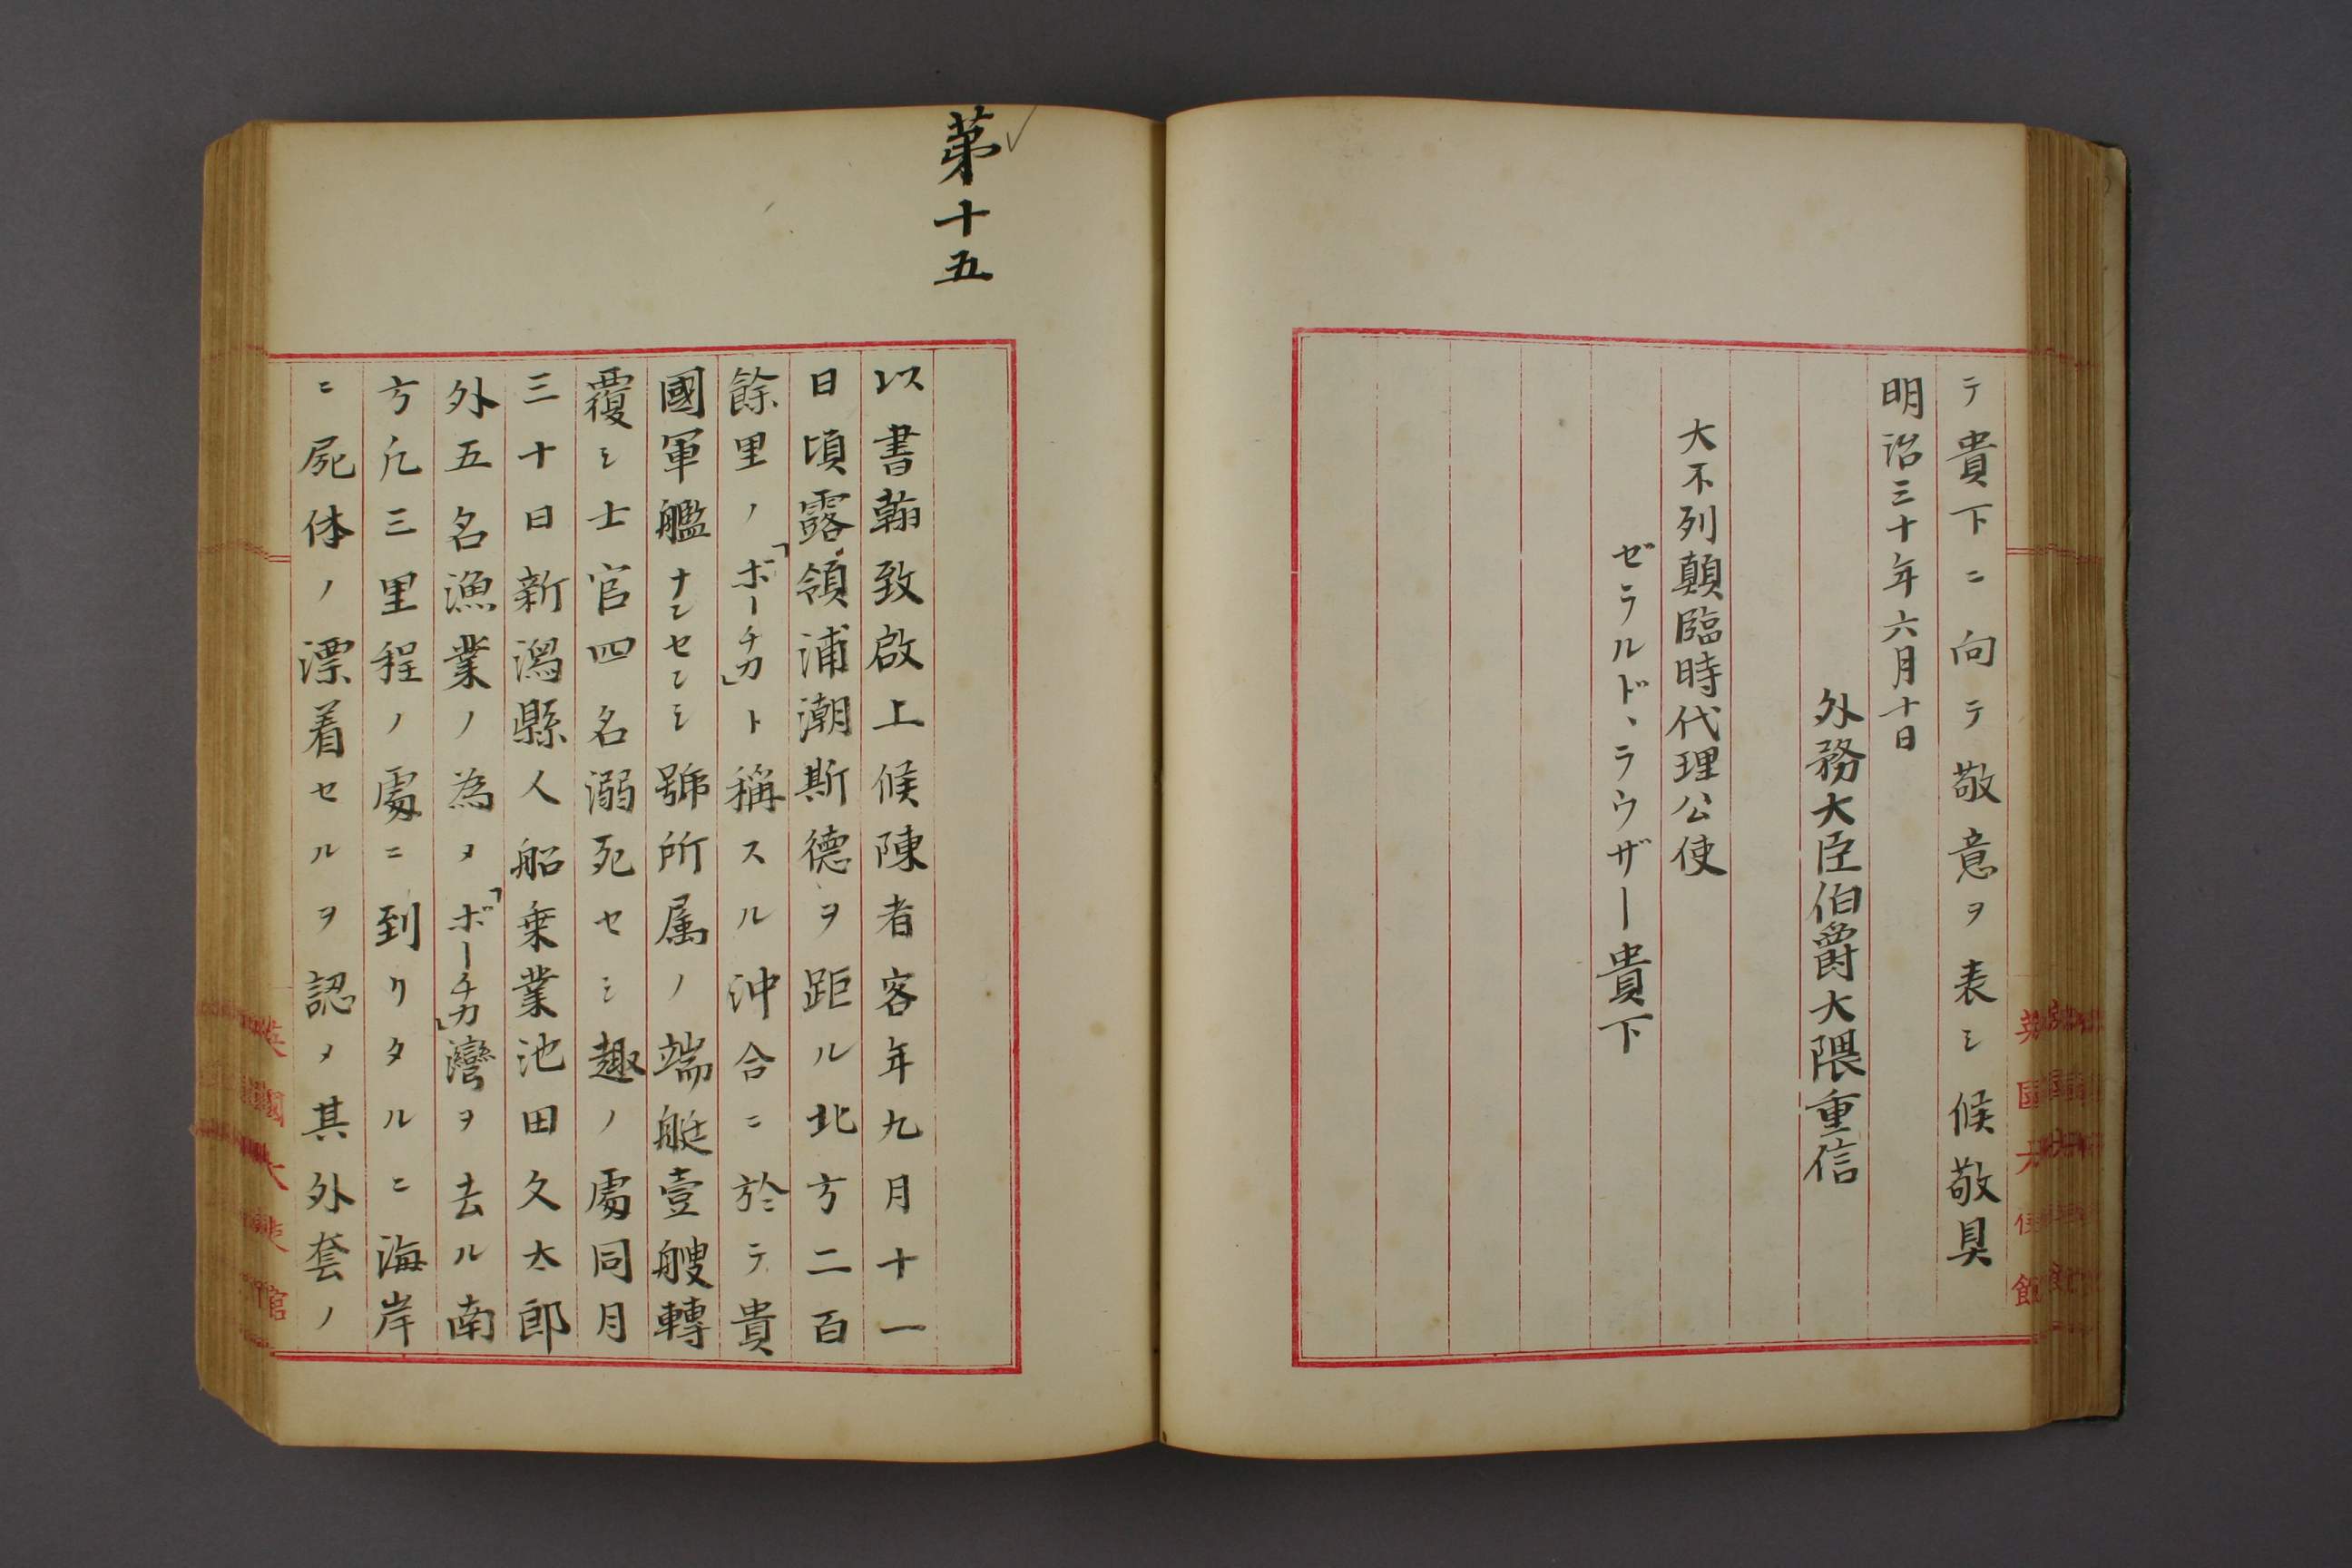 テ貴下ニ向テ敬意ヲ表シ候敬具
明治三十年六月十日
外務大臣伯爵大隈重信
大不列顛臨時代理公使
ゼラルド、ラウザー貴下
第十五
以書翰致啟上候陳者客年九月十一
日頃露領浦潮斯德ヲ距ル北方二百
餘里ノ「ボーチカ」ト稱スル沖合ニ於テ貴
國軍艦ナンセンシ號所属ノ端艇壹艘轉
覆シ士官四名溺死セシ趣ノ處同月
三十日新潟縣人船乗業池田久太郎
外五名漁業ノ為メ「ボーチカ」灣ヲ去ル南
方凢三里程ノ處ニ到リタルニ海岸
ニ屍体ノ漂着セルヲ認メ其外套ノ
英國大使館